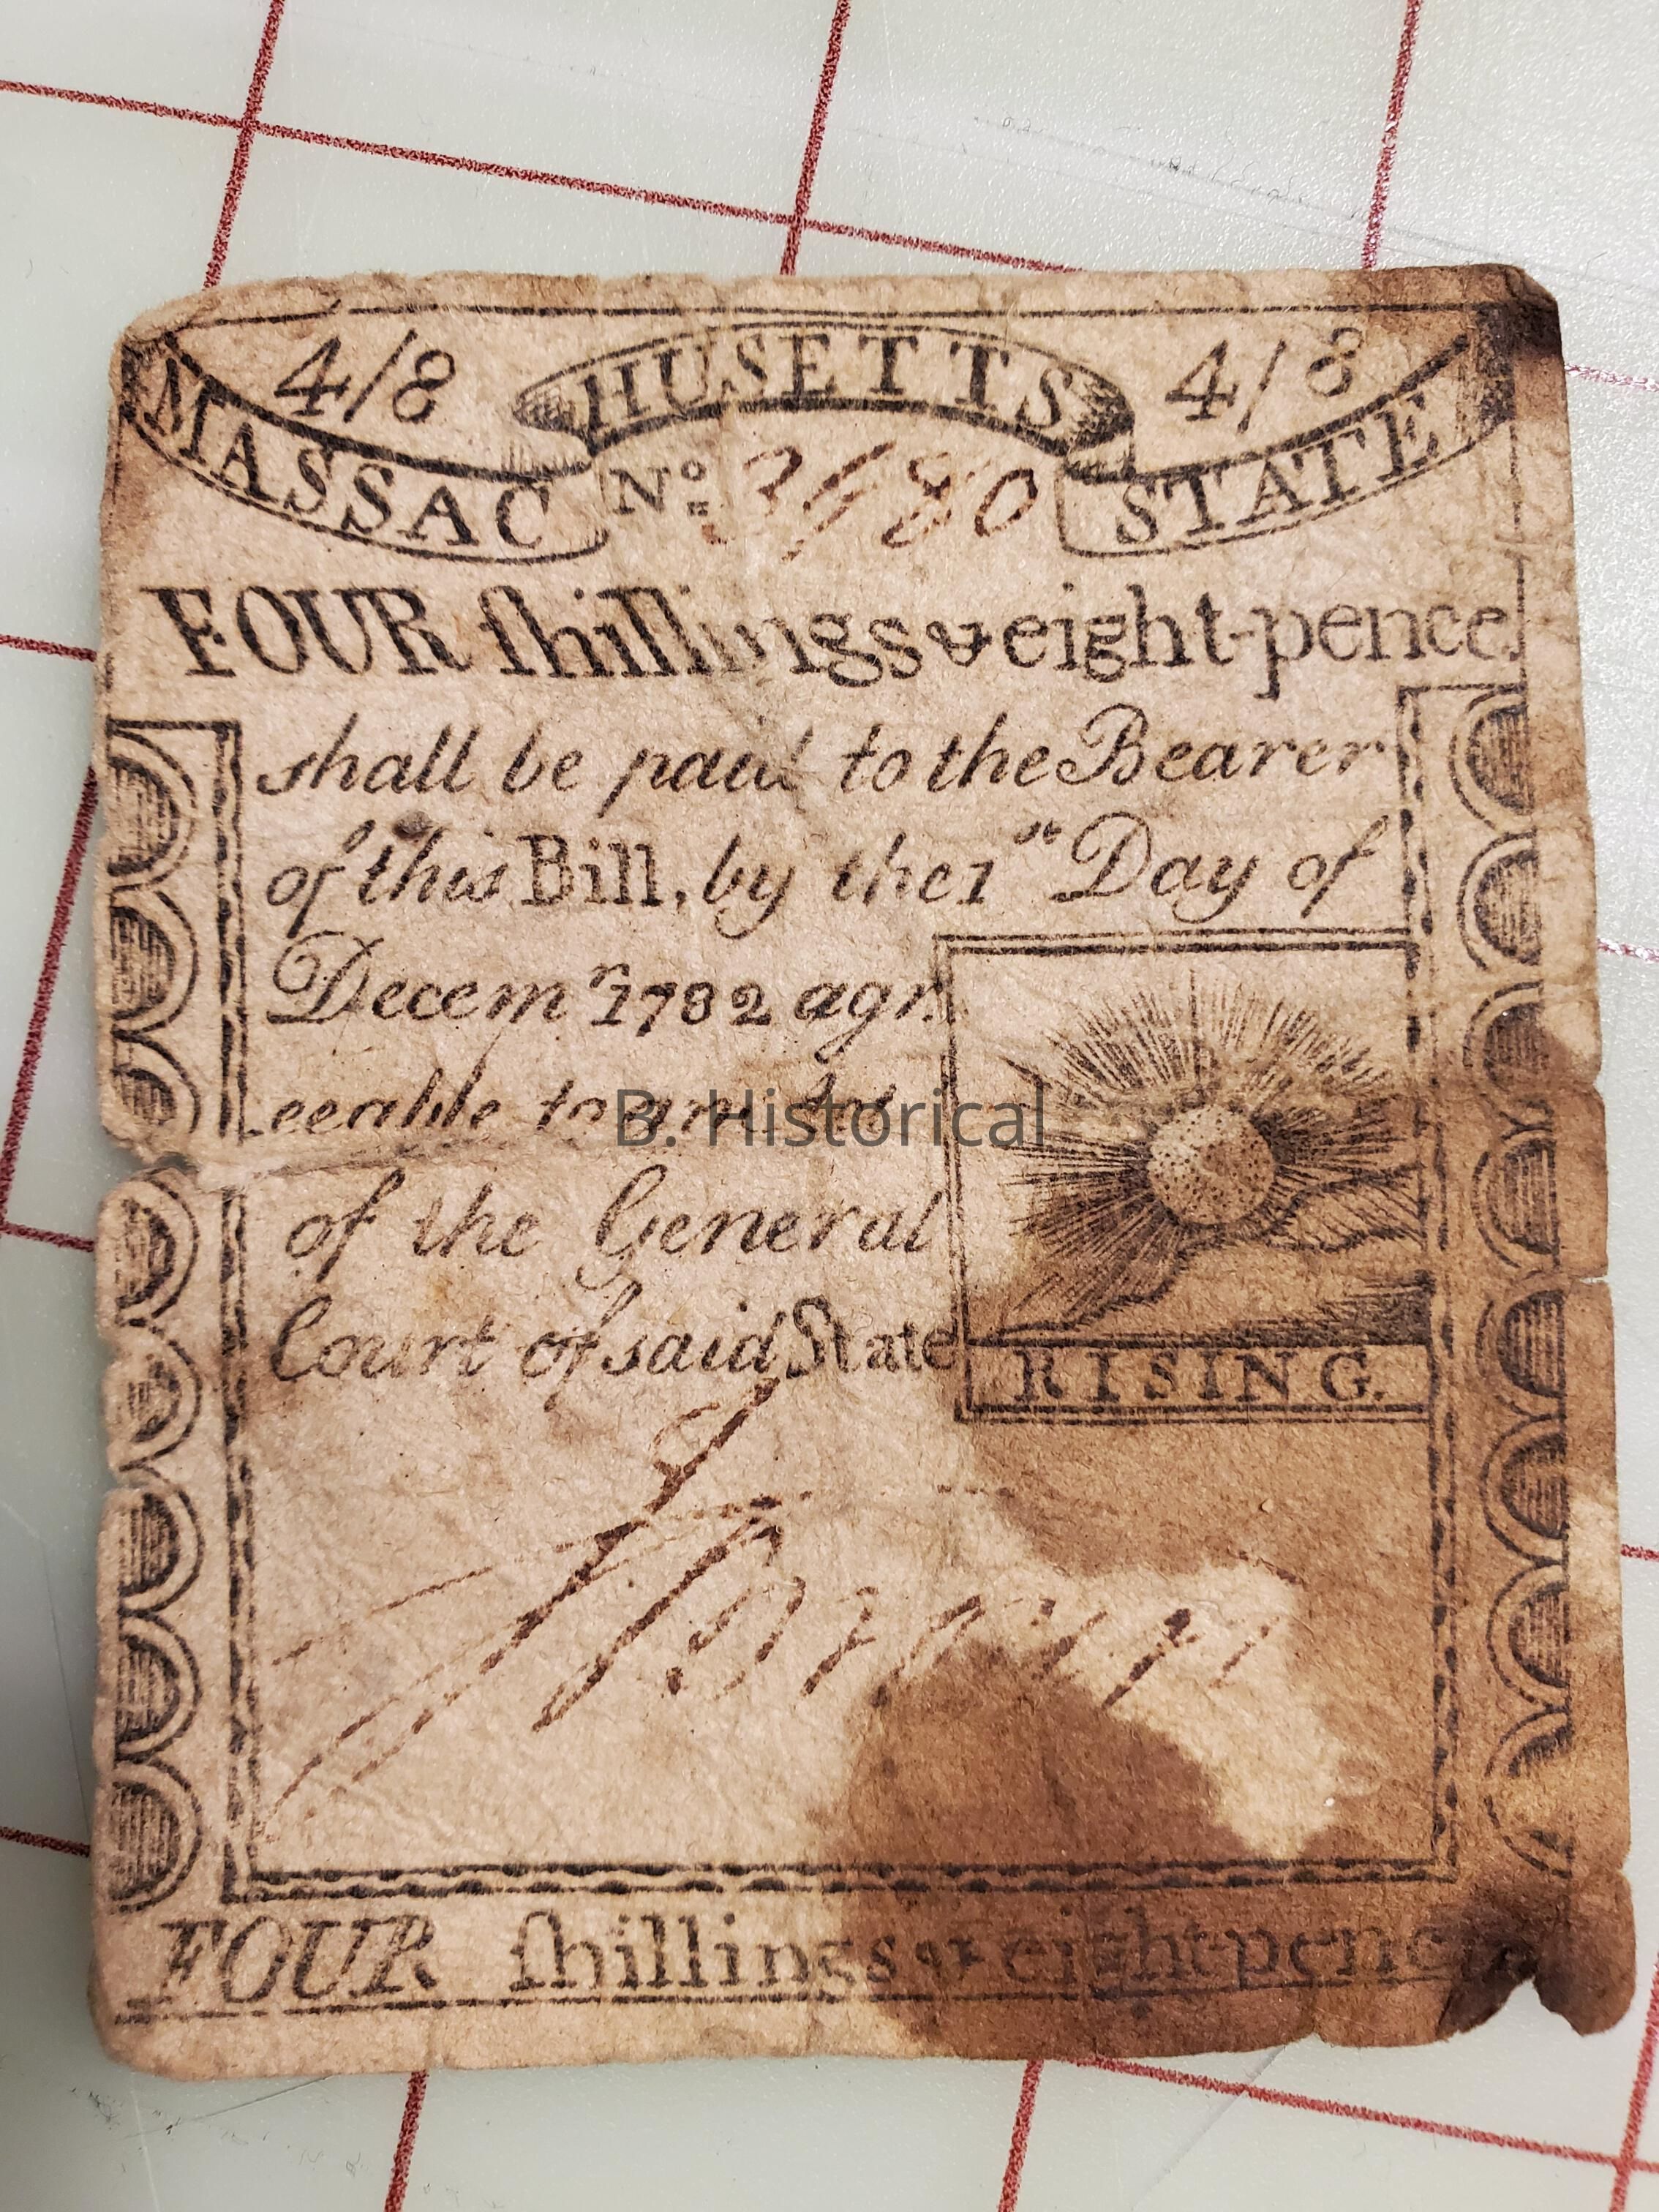 4/8 HUSETTS 4/8
MASSAC Nº STATE
FOUR ſhillings & eight-pence.
shall be paid to the Bearer
of this Bill, by the 1st Day of
Decemr 1782 agr
eeable to an Act
of the General
Court of said State
RISING.
FOUR ſhillings & eight-pence
B. Historical